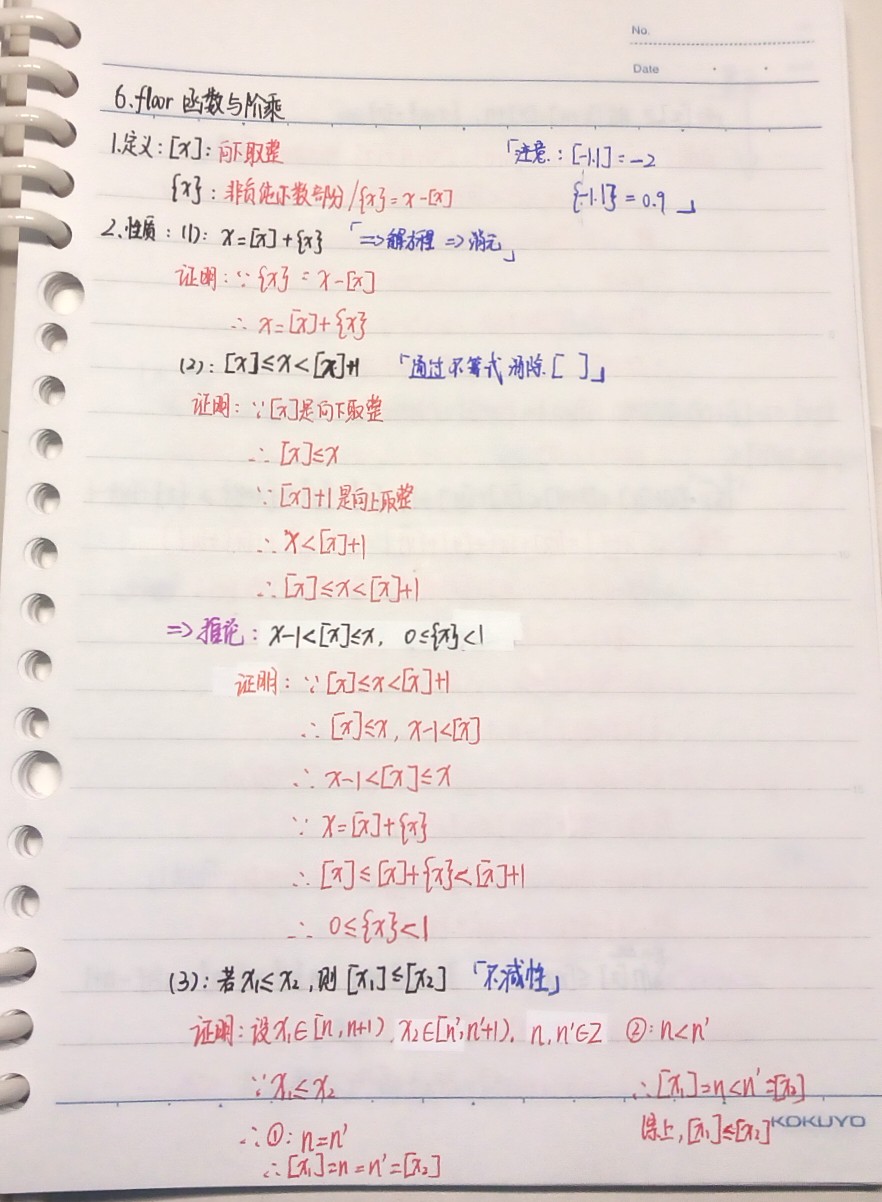 No.
Date
6. floor 函数与阶乘
1. 定义: [x]: 向下取整 「注意: [-1.1]=-2
{x}: 非负纯小数部分/{x}=x-[x] {-1.1}=0.9」
2. 性质: (1): x=[x]+{x} 「=>解方程=>消元」
证明: ∵{x}=x-[x]
∴ x=[x]+{x}
(2): [x]≤x<[x]+1 「通过不等式消除[ ]」
证明: ∵[x]是向下取整
∴ [x]≤x
∵ [x]+1是向上取整
∴ x<[x]+1
∴ [x]≤x<[x]+1
=>推论: x-1<[x]≤x, 0≤{x}<1
证明: ∵ [x]≤x<[x]+1
∴ [x]≤x, x-1<[x]
∴ x-1<[x]≤x
∵ x=[x]+{x}
∴ [x]≤[x]+{x}<[x]+1
∴ 0≤{x}<1
(3): 若x₁≤x₂, 则[x₁]≤[x₂] 「不减性」
证明: 设x₁∈[n,n+1), x₂∈[n',n'+1), n,n'∈Z ②: n<n'
∵x₁≤x₂ ∴[x₁]=n<n'=[x₂]
∴①: n=n' 综上, [x₁]≤[x₂]
∴[x₁]=n=n'=[x₂]
KOKUYO